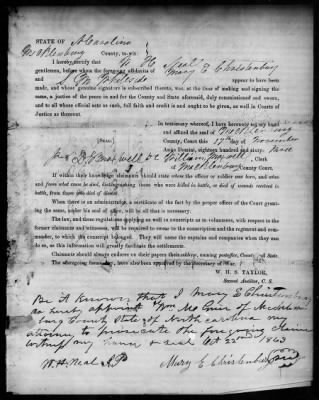 STATE OF N Carolina
Mecklenburg County, to-wit:
I hereby certify that W H Neal
gentlemen, before whom the foregoing affidavits of Mary E Christenbury
and appear to have been
made, and whose genuine signature is subscribed thereto, was, at the time of making and signing the
same, a justice of the peace in and for the County and State aforesaid, duly commissioned and sworn,
and to all whose official acts as such, full faith and credit is and ought to be given, as well in Courts
of Justice as thereout.
In testimony whereof, I have hereunto set my hand
and affixed the seal of Mecklenburg
County, Court this 17th day of November
Anno Domini, eighteen hundred and sixty three
[SEAL]
William Maxwell, Clerk
of Mecklenburg County Court.
If within their knowledge claimants should state when the officer or soldier was born, and when and
from what cause he died, distinguishing those who were killed in battle, or died of wounds received in
battle, from those who died of disease.
When there is an administrator, a certificate of the fact by the proper officer of the Court granting
the same, under his seal of office, will be all that is necessary.
The law, and these regulations applying as well to conscripts as to volunteers, with respect to the
former claimants and witnesses, will be required to swear to the conscription and the regiment and com-
mander, to which the conscript belonged. They will name the captains and companies when they can
do so, as this information will greatly facilitate the settlements.
Claimants should always endorse on their papers their address, naming postoffice, County and State.
The aforegoing formula, have also been approved by the Secretary of War.
W. H. S. TAYLOR,
Second Auditor, C. S.
Be it Known, that I Mary E Christenbury
do hereby appoint Wm Mc Guire of Mecklen
burg County State of North Carolina my
attorney to prosecute the foregoing claim
witness my hand & seal Oct 22nd 1863
W. H. Neal JP Mary E Christenbury